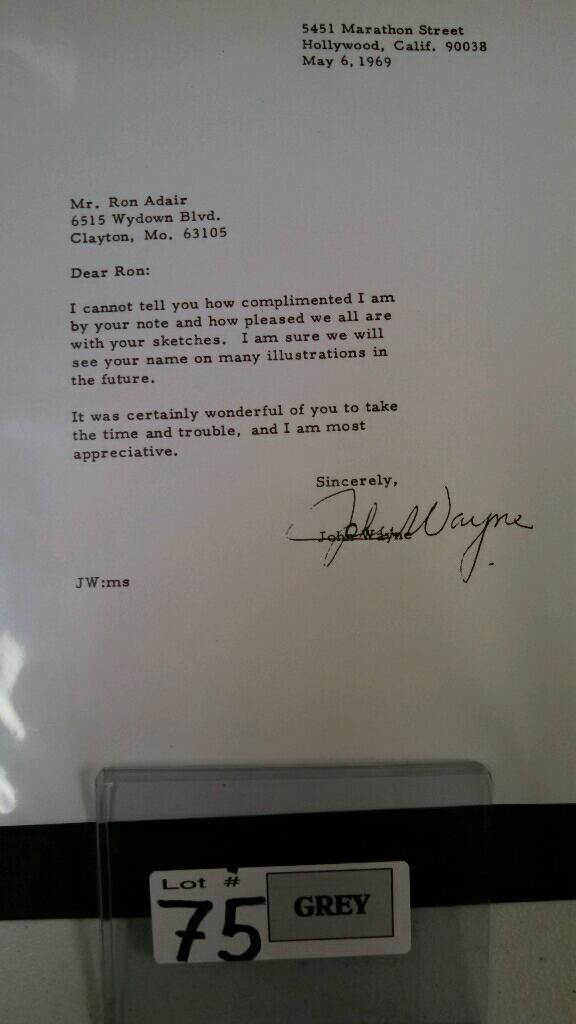 5451 Marathon Street
Hollywood, Calif. 90038
May 6, 1969
Mr. Ron Adair
6515 Wydown Blvd.
Clayton, Mo. 63105
Dear Ron:
I cannot tell you how complimented I am
by your note and how pleased we all are
with your sketches. I am sure we will
see your name on many illustrations in
the future.
It was certainly wonderful of you to take
the time and trouble, and I am most
appreciative.
Sincerely,
John Wayne
John Wayne
JW:ms
Lot #
75
GREY